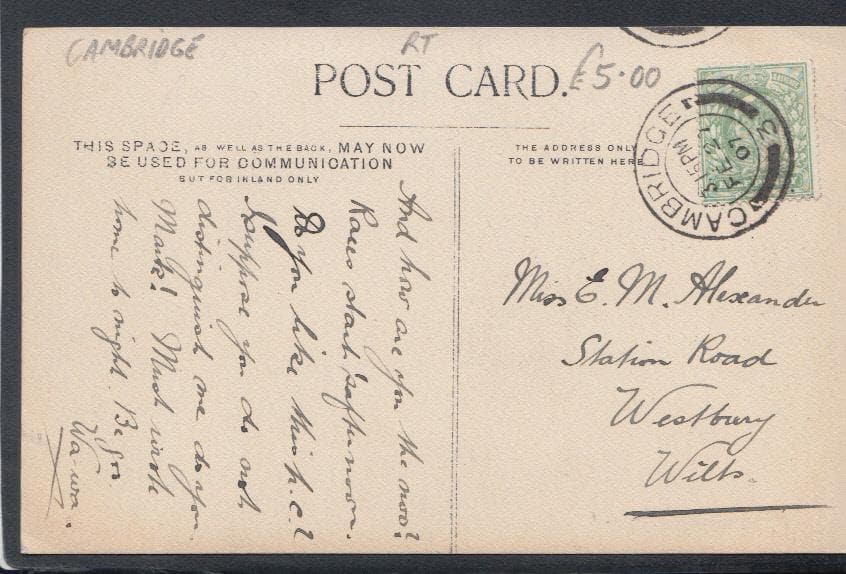 CAMBRIDGE
RT
POST CARD.
£5.00
THIS SPACE, AS WELL AS THE BACK, MAY NOW
BE USED FOR COMMUNICATION
BUT FOR INLAND ONLY
THE ADDRESS ONLY
TO BE WRITTEN HERE
CAMBRIDGE
3.15 PM
FE 21
07
3
And how are you the noo?
Races start s'afternoon.
Do you like this p.c.?
Suppose you do not
distinguish me do you
Mark! Must write
home to night. Be goo.
Wa-wa.
Miss E. M. Alexander
Station Road
Westbury
Wilts.